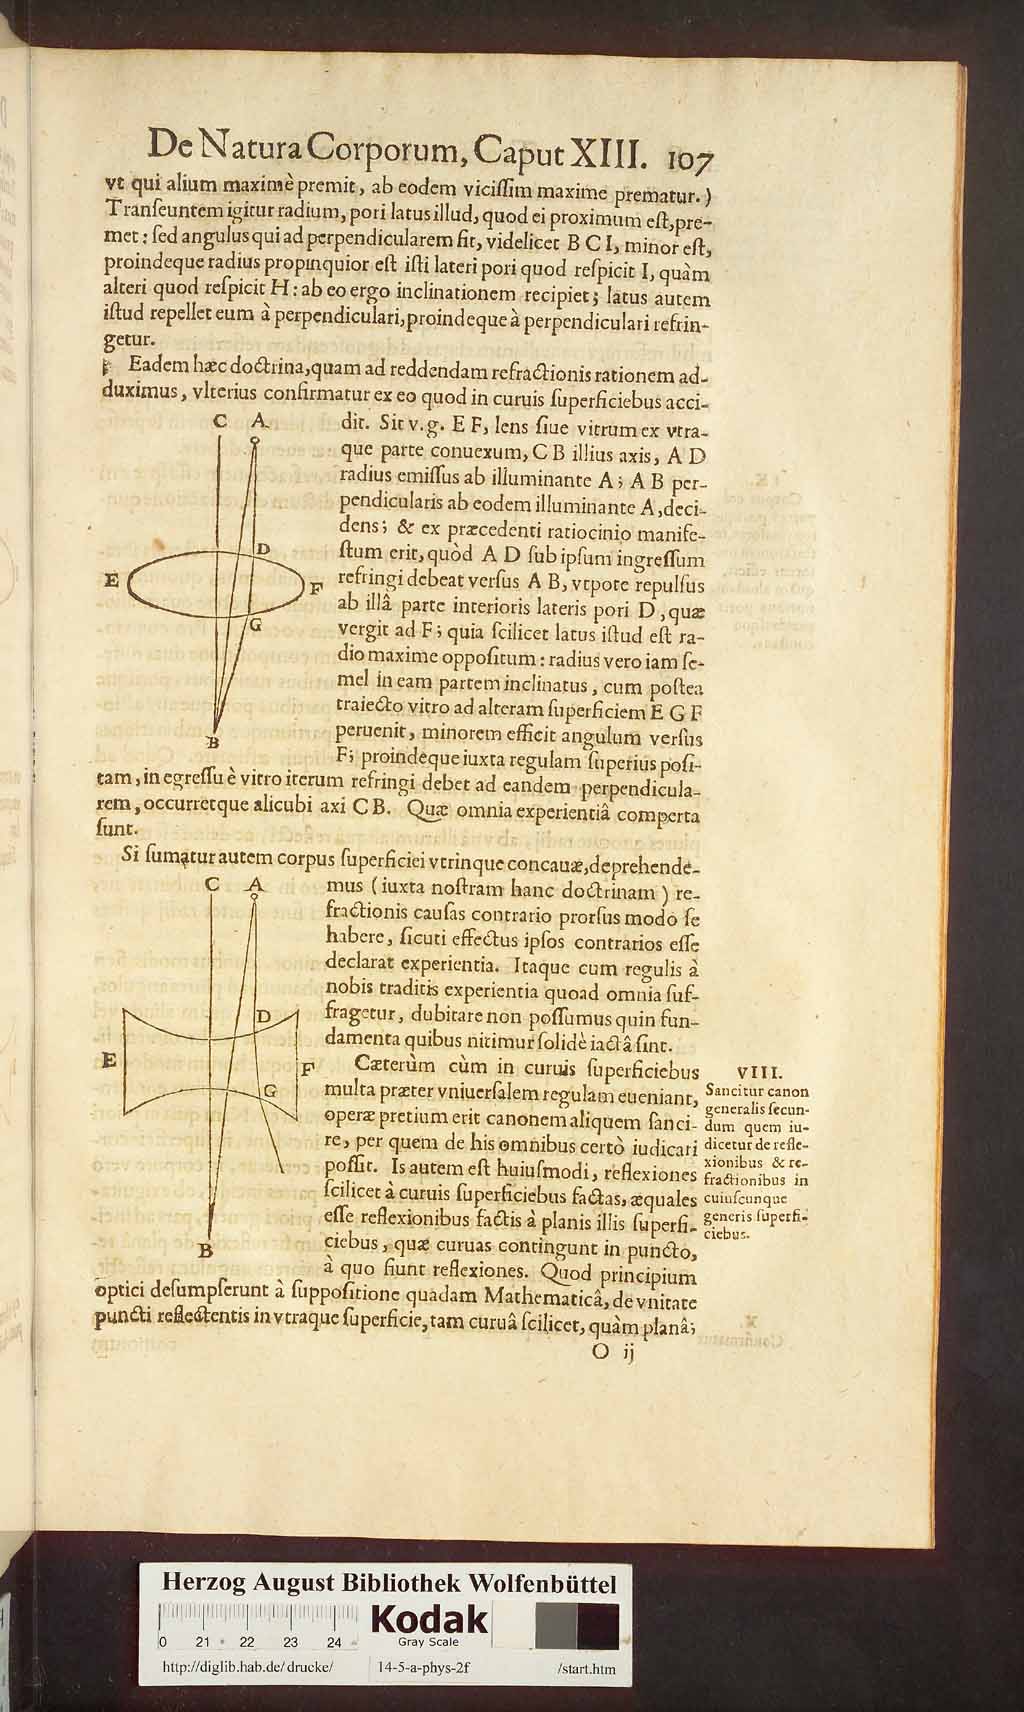 De Natura Corporum, Caput XIII. 107
vt qui alium maximè premit, ab eodem viciſſim maxime prematur.)
Tranſeuntem igitur radium, pori latus illud, quod ei proximum eſt, pre-
met: ſed angulus qui ad perpendicularem fit, videlicet B C I, minor eſt,
proindeque radius propinquior eſt iſti lateri pori quod reſpicit I, quàm
alteri quod reſpicit H: ab eo ergo inclinationem recipiet; latus autem
iſtud repellet eum à perpendiculari, proindeque à perpendiculari refrin-
getur.
Eadem hæc doctrina, quam ad reddendam refractionis rationem ad-
duximus, vlterius confirmatur ex eo quod in curuis ſuperficiebus acci-
dit. Sit v. g. E F, lens ſiue vitrum ex vtra-
que parte conuexum, C B illius axis, A D
radius emiſſus ab illuminante A; A B per-
pendicularis ab eodem illuminante A, deci-
dens; & ex præcedenti ratiocinio manife-
ſtum erit, quòd A D ſub ipſum ingreſſum
refringi debeat verſus A B, vtpote repulſus
ab illâ parte interioris lateris pori D, quæ
vergit ad F; quia ſcilicet latus iſtud eſt ra-
dio maxime oppoſitum: radius vero iam ſe-
mel in eam partem inclinatus, cum poſtea
traiecto vitro ad alteram ſuperficiem E G F
peruenit, minorem efficit angulum verſus
F; proindeque iuxta regulam ſuperius poſi-
tam, in egreſſu è vitro iterum refringi debet ad eandem perpendicula-
rem, occurretque alicubi axi C B. Quæ omnia experientiâ comperta
ſunt.
C A
D
E
F
G
B
Si ſumatur autem corpus ſuperficiei vtrinque concauæ, deprehende-
mus (iuxta noſtram hanc doctrinam) re-
fractionis cauſas contrario prorſus modo ſe
habere, ſicuti effectus ipſos contrarios eſſe
declarat experientia. Itaque cum regulis à
nobis traditis experientia quoad omnia ſuf-
fragetur, dubitare non poſſumus quin fun-
damenta quibus nitimur ſolidè iactâ ſint.
C A
D
E
F
G
B
Cæterùm cùm in curuis ſuperficiebus
multa præter vniuerſalem regulam eueniant,
operæ pretium erit canonem aliquem ſanci-
re, per quem de his omnibus certò iudicari
poſſit. Is autem eſt huiuſmodi, reflexiones
ſcilicet à curuis ſuperficiebus factas, æquales
eſſe reflexionibus factis à planis illis ſuperfi-
ciebus, quæ curuas contingunt in puncto,
à quo fiunt reflexiones. Quod principium
optici deſumpſerunt à ſuppoſitione quadam Mathematicâ, de vnitate
puncti reflectentis in vtraque ſuperficie, tam curuâ ſcilicet, quàm planâ;
VIII.
Sancitur canon
generalis ſecun-
dum quem iu-
dicetur de refle-
xionibus & re-
fractionibus in
cuiuſcunque
generis ſuperfi-
ciebus.
O ij
Herzog August Bibliothek Wolfenbüttel
0 21 22 23 24
Kodak
Gray Scale
http://diglib.hab.de/drucke/ 14-5-a-phys-2f /start.htm